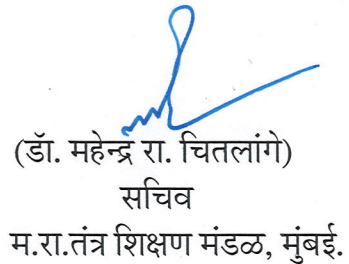 (डॉ. महेन्द्र रा. चितलांगे)
सचिव
म.रा.तंत्र शिक्षण मंडळ, मुंबई.